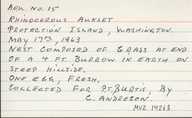 Acc. No. 15
Rhinocerous Auklet
Protection Island, Washington.
May 17th, 1963
Nest composed of grass at end
of a 4 ft. burrow in earth on
steep hillside.
One egg, fresh.
Collected for by
C. Anderson.
MVZ 14263